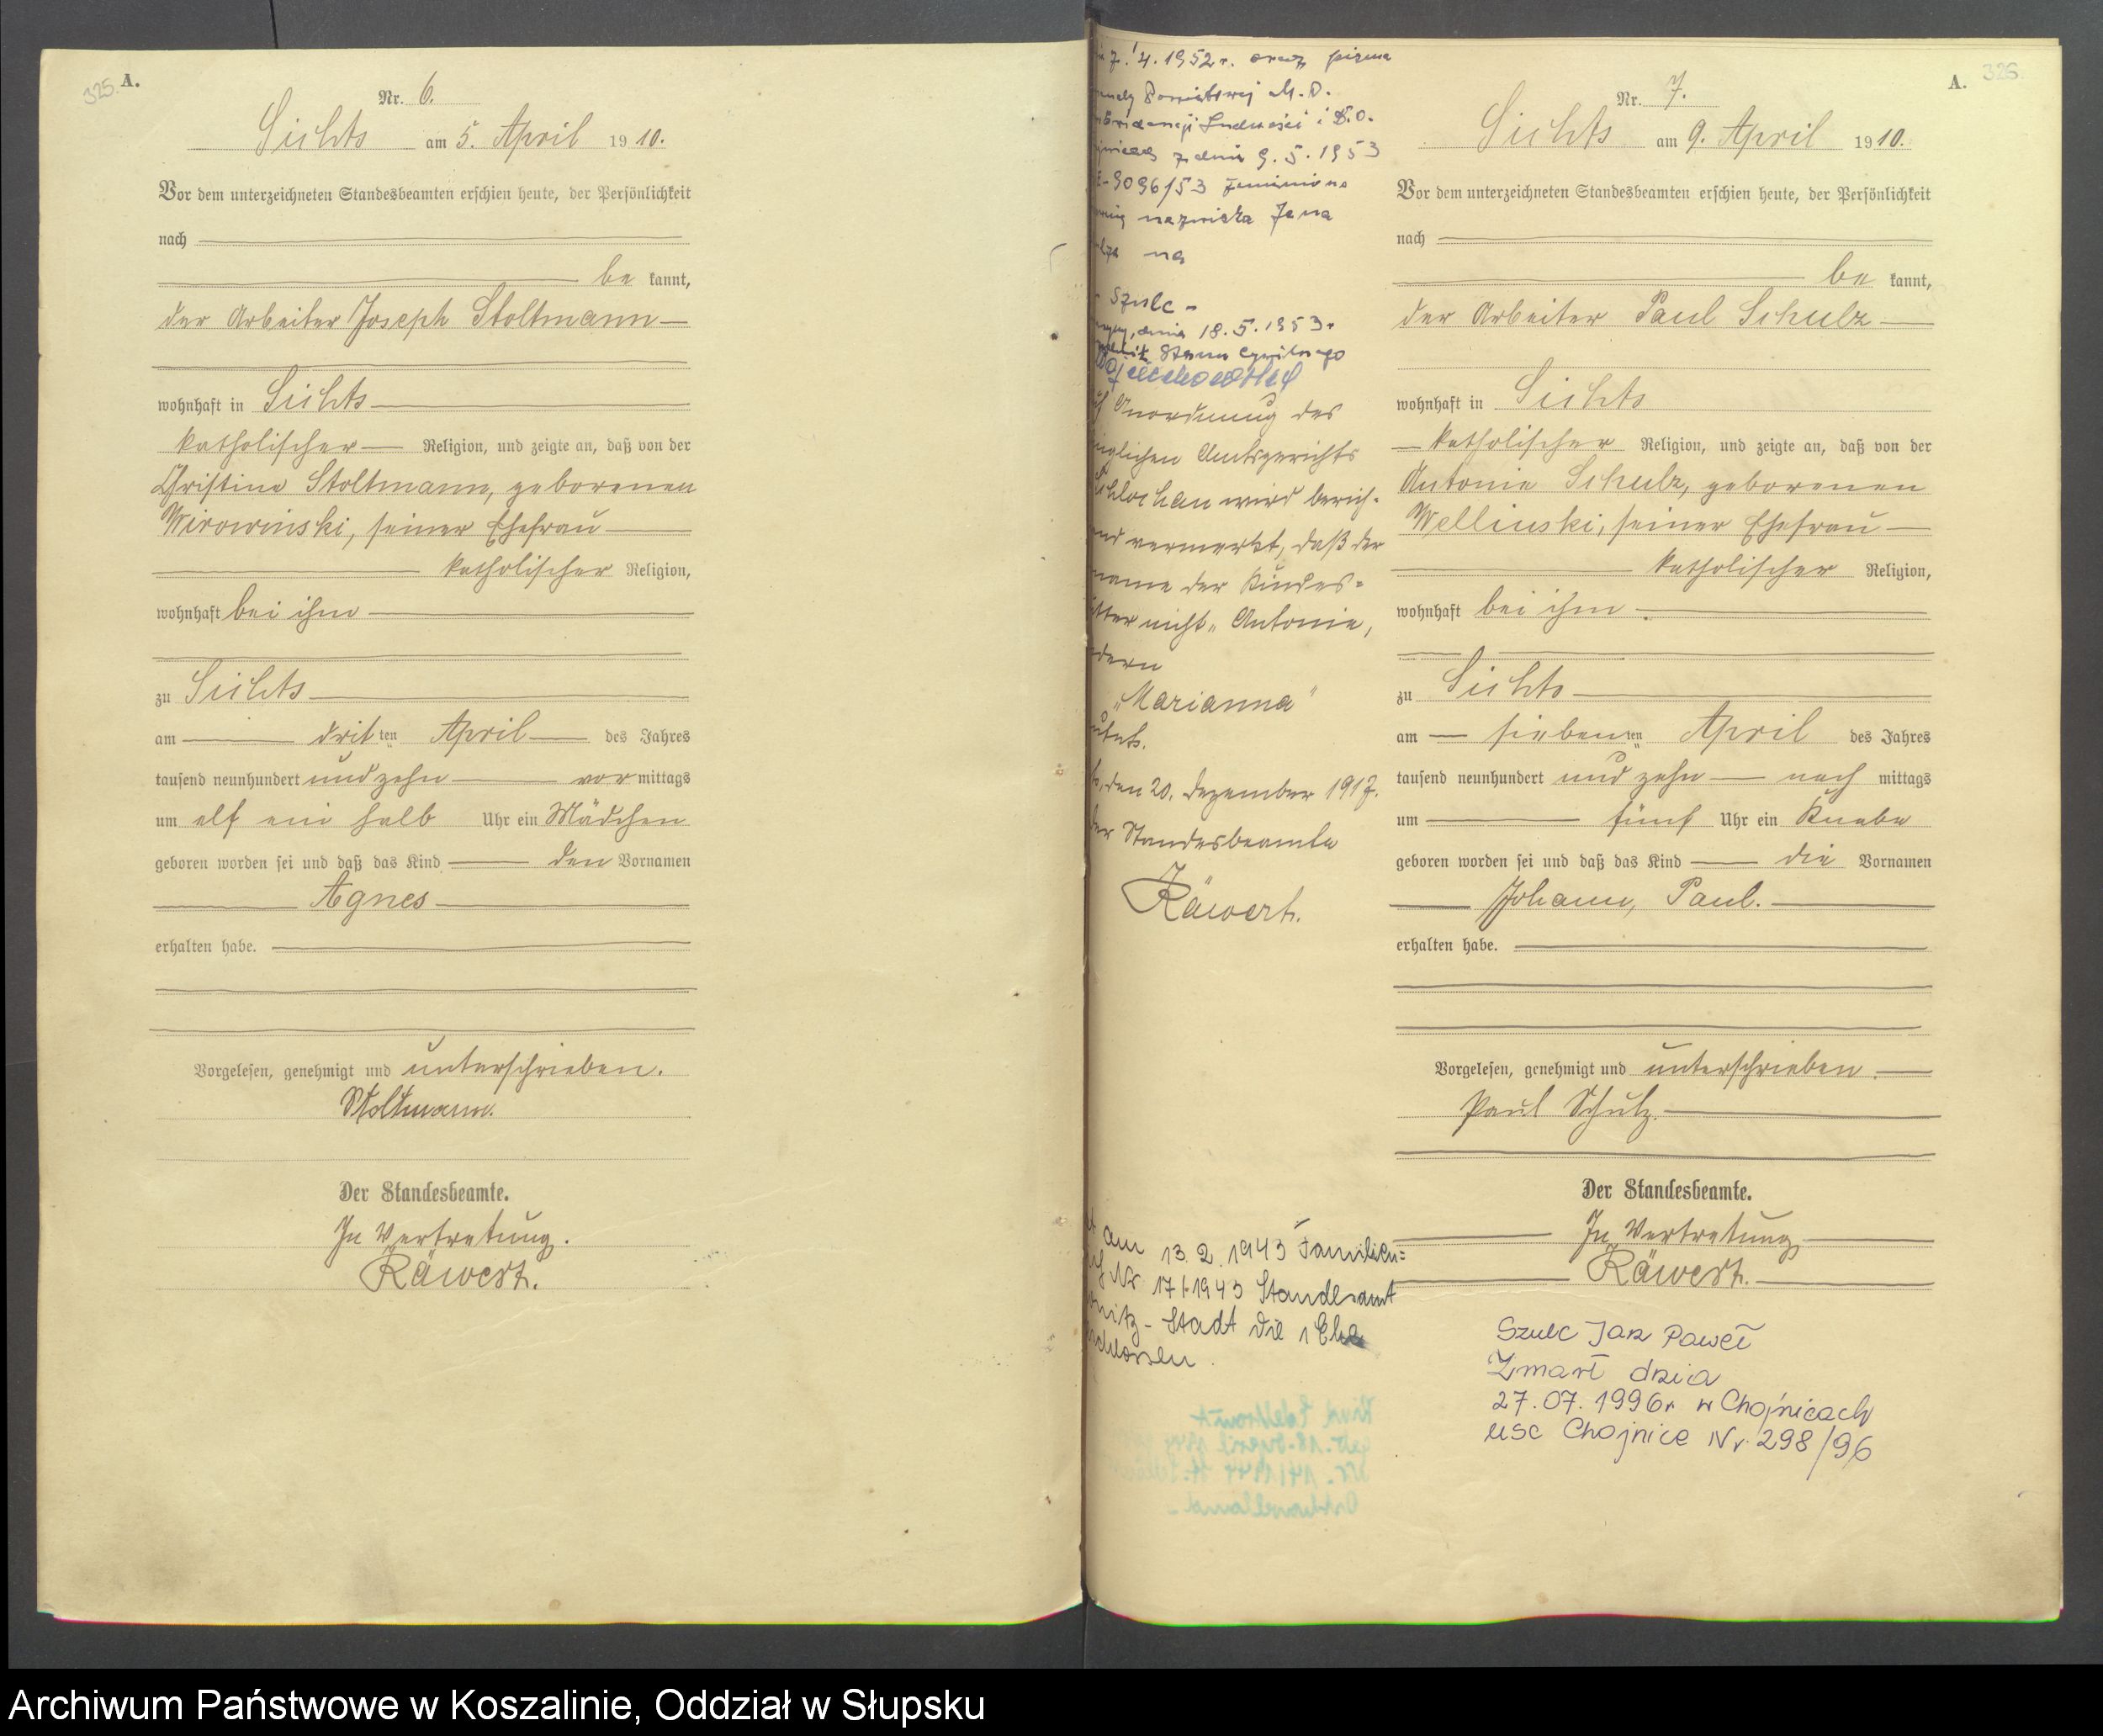 325. A.
Nr. 6.
Sichts am 5. April 1910.
Vor dem unterzeichneten Standesbeamten erschien heute, der Persönlichkeit
nach
be kannt,
der Arbeiter Joseph Stoltmann
wohnhaft in Sichts
katholischer Religion, und zeigte an, daß von der
Christine Stoltmann, geborenen
Wirowinski, seiner Ehefrau
katholischer Religion,
wohnhaft bei ihm
zu Sichts
am dritten April des Jahres
tausend neunhundert und zehn vormittags
um elf ein halb Uhr ein Mädchen
geboren worden sei und daß das Kind den Vornamen
Agnes
erhalten habe.
Vorgelesen, genehmigt und unterschrieben.
Stoltmann.
Der Standesbeamte.
In Vertretung.
Räwert.
7.4.1952r. oraz pisma
Powiatowej M.O.
Ludności i D.O.
z dnia 9.5.1953
9096/53 zmieniono
nazwiska Jana
na
Szulc -
dnia 18.5.1953r
Stanu Cywilnego
Anordnung des
Amtsgerichts
Schlochau wird berich-
vermerkt, daß der
name der Kindes=
nicht „Antonie,
dern
„Marianna"
den 20. Dezember 1917.
der Standesbeamte
Räwert.
am 13.2.1943 Familien=
Nr 17/1943 Standesamt
Stadt die 1 Ehe
schlossen.
A. 326
Nr. 7.
Sichts am 9. April 1910.
Vor dem unterzeichneten Standesbeamten erschien heute, der Persönlichkeit
nach
be kannt,
der Arbeiter Paul Schulz
wohnhaft in Sichts
katholischer Religion, und zeigte an, daß von der
Antonie Schulz, geborenen
Wellinski, seiner Ehefrau
katholischer Religion,
wohnhaft bei ihm
zu Sichts
am siebenten April des Jahres
tausend neunhundert und zehn nach mittags
um fünf Uhr ein Knabe
geboren worden sei und daß das Kind die Vornamen
Johann, Paul.
erhalten habe.
Vorgelesen, genehmigt und unterschrieben.
Paul Schulz.
Der Standesbeamte.
In Vertretung
Räwert.
Szulc Jan Paweł
Zmarł dnia
27.07.1996r w Chojnicach
USC Chojnice Nr 298/96
Archiwum Państwowe w Koszalinie, Oddział w Słupsku